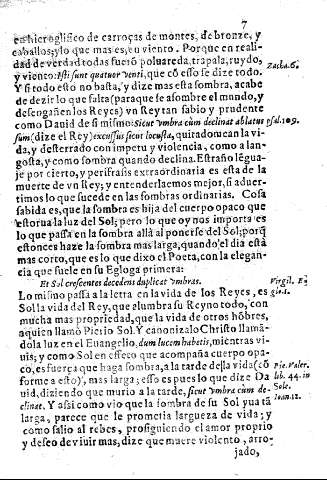 7
en hieroglifico de carroças de montes, de bronze, y
caballos; ylo que mas es, en viento. Porque en reali-
dad de verdad todas fuerõ poluareda, trapala, ruydo,
y viento: isti sunt quatuor venti, que cõ esso se dize todo.
Zacha. 6.
Y si todo esto no basta, y dize mas esta sombra, acabe
de dezir lo que falta (paraque se assombre el mundo, y
desengañen los Reyes) vn Rey tan sabio y prudente
como Dauid de si mismo: sicut vmbra cùm declinat ablatus
psal. 109.
sum (dize el Rey) excussus sicut locusta, quitadome an la vi-
da, y desterrado con impetu y violencia, como a lan-
gosta, y como sombra quando declina. Estraño lēgua-
je por cierto, y perifrasis extraordinaria es esta de la
muerte de vn Rey; y entenderlaemos mejor, si aduer-
timos lo que sucede en las sombras ordinarias. Cosa
sabida es, que la sombra es hija del cuerpo opaco que
estorua la luz del Sol; pero lo que oy nos importa es
lo que passa en la sombra allà al ponerse del Sol; porq̃
estonces haze la sombra mas larga, quando el dia està
mas corto, que es lo que dixo el Poeta, con la elegan-
cia que suele en su Egloga primera:
Et Sol crescentes decedens duplicat vmbras.
Virgil. Eg-
glo. 1.
Lo mismo passa a la letra en la vida de los Reyes, es
Sol la vida del Rey, que alumbra su Reyno todo, con
mucha mas propriedad, que la vida de otros hõbres,
a quien llamò Pierio Sol. Y canonizalo Christo llamã-
dola luz en el Euangelio, dum lucem habetis, mientras vi-
uis; y como Sol en effeco que acompaña cuerpo opa-
co, es fuerça que haga sombra, a la tarde de la vida (cõ
Pie. Valer.
forme a esto), mas larga; esso es pues lo que dize Da
lib. 44. in
uid, diziendo que murio a la tarde, sicut vmbra cùm de-
Sole.
clinat. Y assi como vio que la sombra de su Sol yua tã
Ioan. 12.
larga, parece que le prometia largueza de vida; y
como salio al rebes, prosiguiendo el amor proprio
y desseo de viuir mas, dize que muere violento, arro-
jado,